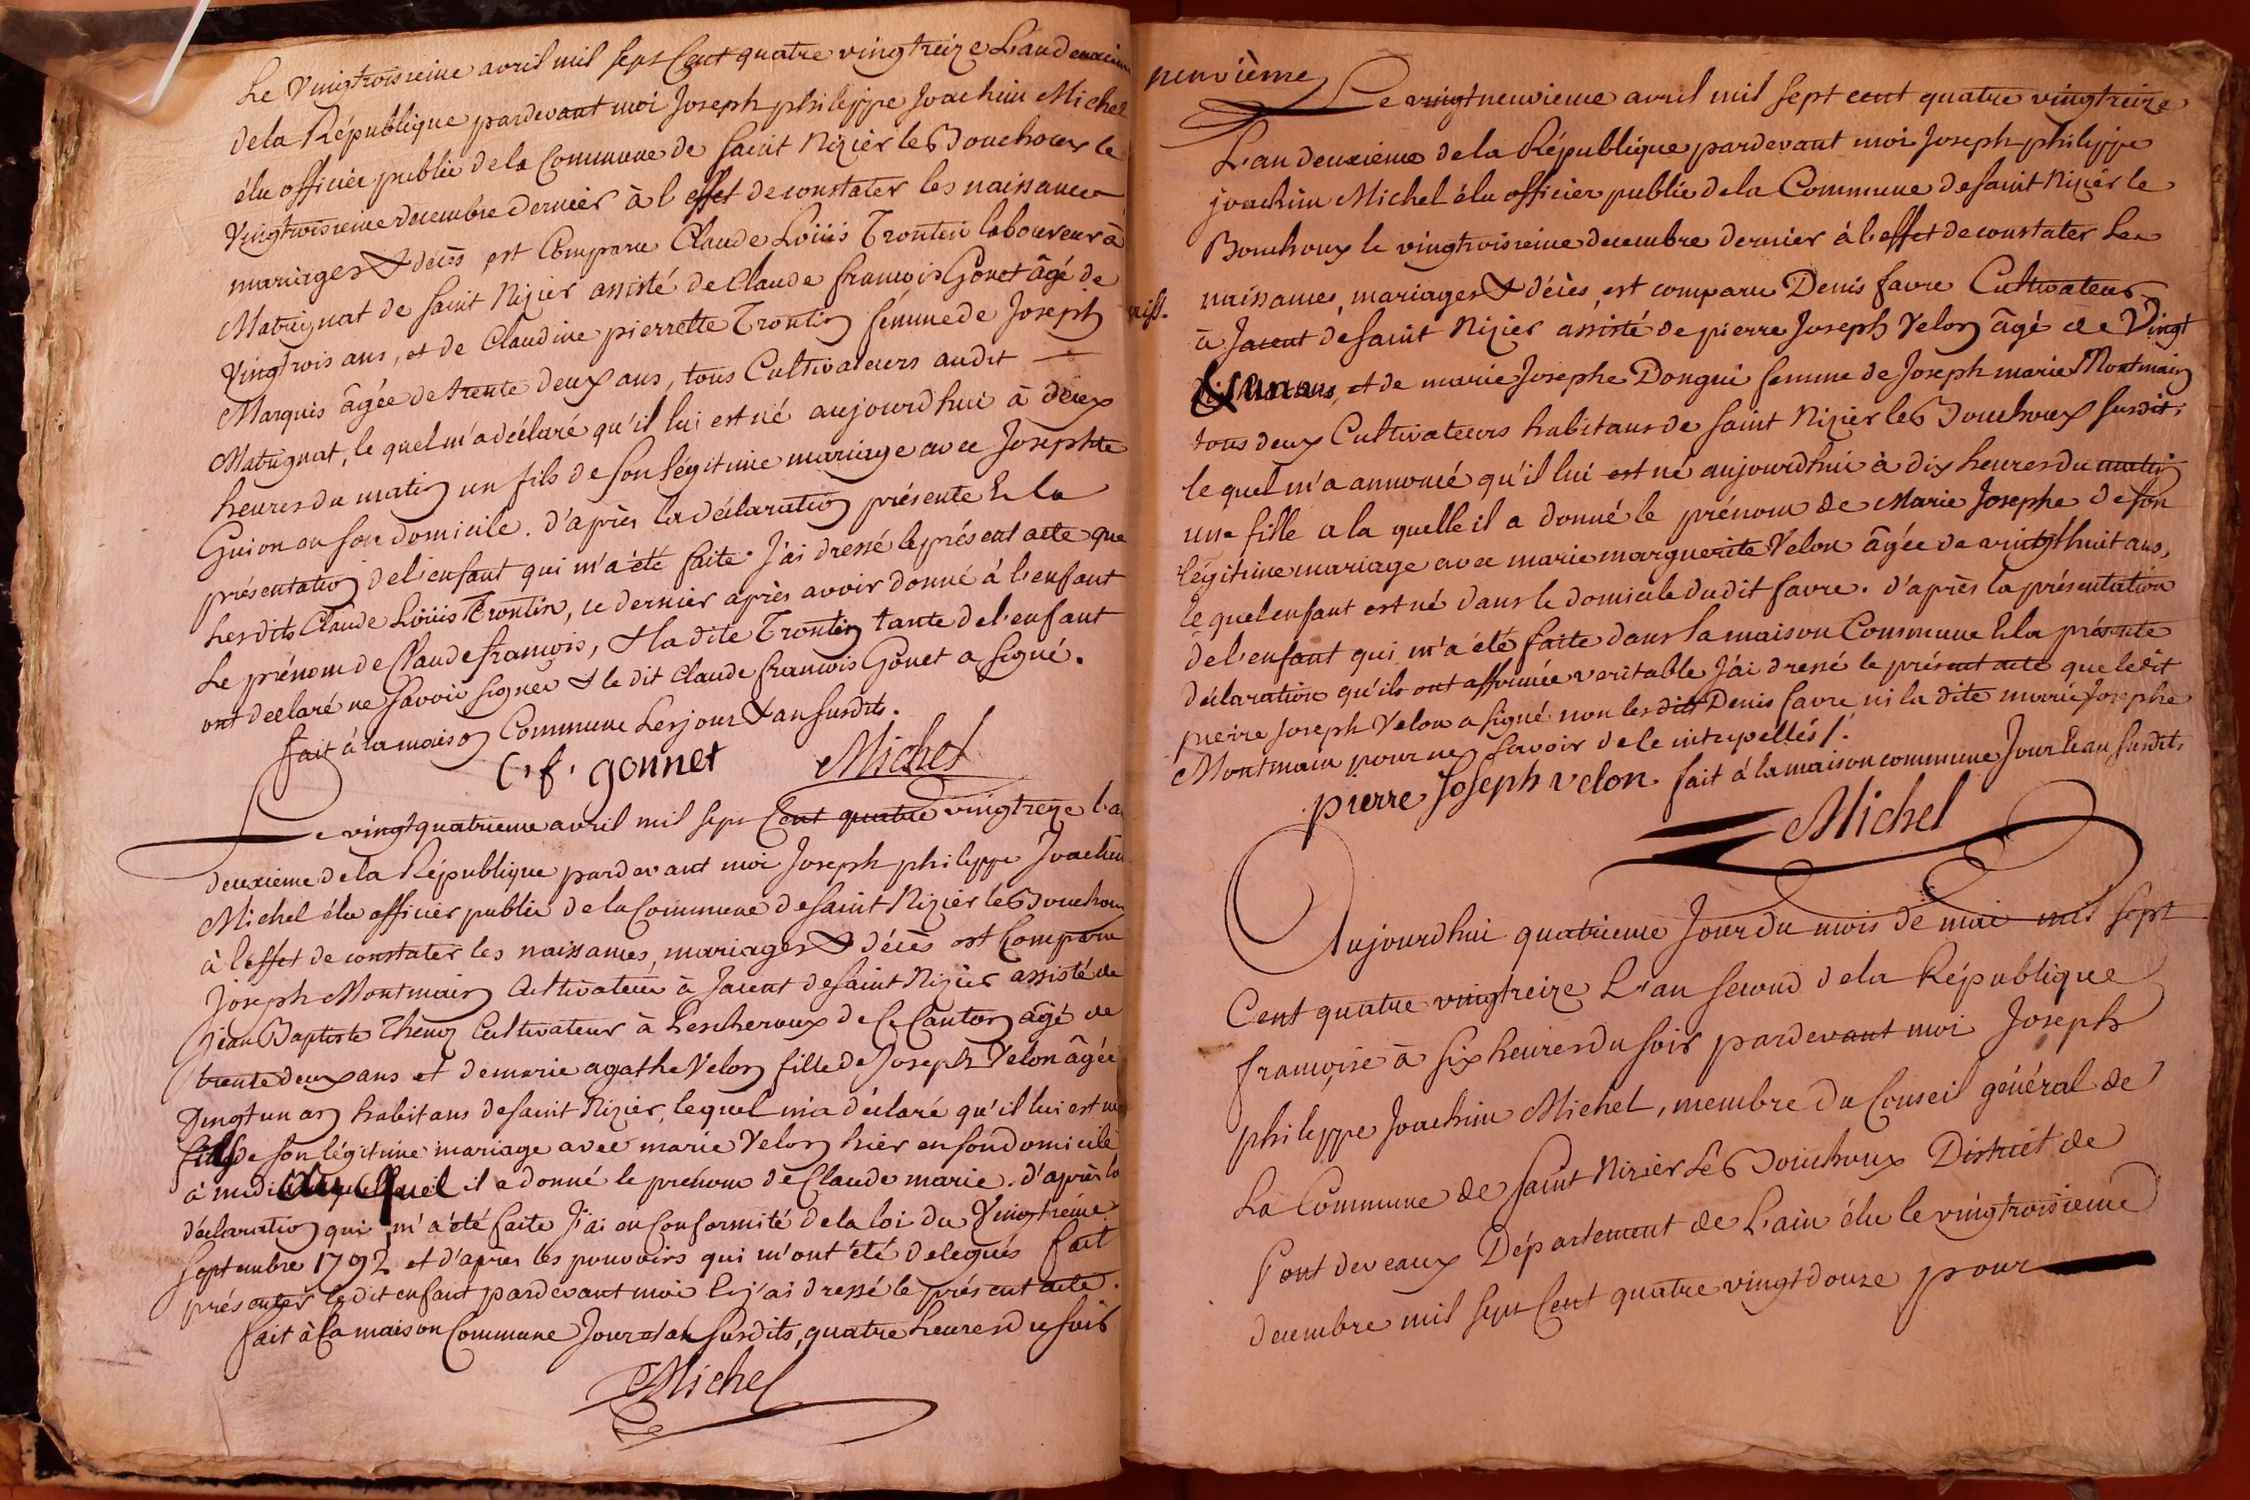 Le Vingtroisieme avril mil sept Cent quatre vingtreize L'an deuxieme
de la République pardevant moi Joseph philippe Joachim Michel
élu officier public de la Commune de Saint Nizier le Bouchoux le
Vingtroisieme decembre dernier à l'effet de constater les naissances
mariages & décès est Comparu Claude Loüis Trontin laboureur à
Matrignat de Saint Nizier assisté de Claude françois Gonet âgé de
Vingtrois ans, et de Claudine pierrette Trontin femme de Joseph
Marquis âgée de trente deux ans, tous Cultivateurs audit
Matrignat, le quel m'a déclaré qu'il lui est né aujourdhui à deux
heures du matin un fils de son légitime mariage avec Josephte
Guion en son domicile. d'après la déclaration présente & la
présentation de l'enfant qui m'a été faite j'ai dressé le présent acte que
lesdits Claude Loüis Trontin, ce dernier après avoir donné à l'enfant
Le prénom de Claude françois, & la dite Trontin tante de l'enfant
ont declaré ne savoir signer & le dit Claude francois Gonet a signé.
fait à la maison Commune les jour & an susdits.
C. f. gonnet Michel
Le vingtquatrieme avril mil sept Cent quatre vingtreze l'an
deuxieme de la République pardevant moi Joseph philippe Joachim
Michel élu officier public de la Commune de Saint Nizier le Bouchoux
à l'effet de constater les naissances, mariages & décès est Comparu
Joseph Montmain Cultivateur à Jacent de Saint Nizier assisté de
Jean Baptiste Cultivateur à Lescheroux de Ce Canton âgé de
trente deux ans et de marie agathe Velon fille de Joseph Velon âgée
Vingt un an habitans de Saint Nizier, lequel m'a déclaré qu'il lui est né
fils de son légitime mariage avec marie Velon hier en son domicile
à midi auquel il a donné le prénom de Claude marie. d'après la
déclaration qui m'a été faite j'ai en conformité de la loi du Vingtieme
Septembre 1792 et d'après les pouvoirs qui m'ont été delegués fait
présenter ledit enfant pardevant moi & j'ai dressé le présent acte.
fait à la maison Commune Jour & an susdits, quatre heures du soir
Michel
neuvième
Le vingtneuvieme avril mil sept cent quatre vingtreize
L'an deuxieme de la République pardevant moi Joseph philippe
joachim Michel élu officier public de la Commune de Saint Nizier le
Bouchoux le vingtroisieme decembre dernier à l'effet de constater les
naissances, mariages & décès, est comparu Denis favre Cultivateur
à Jacent de Saint Nizier assisté de pierre Joseph Velon âgé de Vingt
ans, et de marie Josephe Dongui femme de Joseph marie Montmain
tous deux Cultivateurs habitans de Saint Nizier le Bouchoux susdit,
le quel m'a annoncé qu'il lui est né aujourdhui à dix heures du matin
une fille a la quelle il a donné le prénom de Marie Josephe de son
légitime mariage avec marie marguerite Velon âgée de vingt huit ans,
le quel enfant est né dans le domicile dudit favre. d'après la présentation
de l'enfant qui m'a été faite dans la maison Commune & la présente
déclaration qu'ils ont affirmée veritable j'ai dressé le présent acte que ledit
pierre Joseph Velon a signé non lesdits Denis favre ni la dite marie Josephe
Montmain pour ne savoir de ce interpellés /.
pierre Joseph velon fait à la maison commune Jour & an susdits
Michel
Aujourdhui quatrieme Jour du mois de mai mil sept
Cent quatre vingtreize L'an second de la République
françoise à six heures du soir pardevant moi Joseph
philippe Joachim Michel, membre du Conseil général de
La Commune de Saint Nizier Le Bouchoux District de
Pont devaux Département de L'ain élu le vingtroisieme
decembre mil sept Cent quatre vingtdouze pour